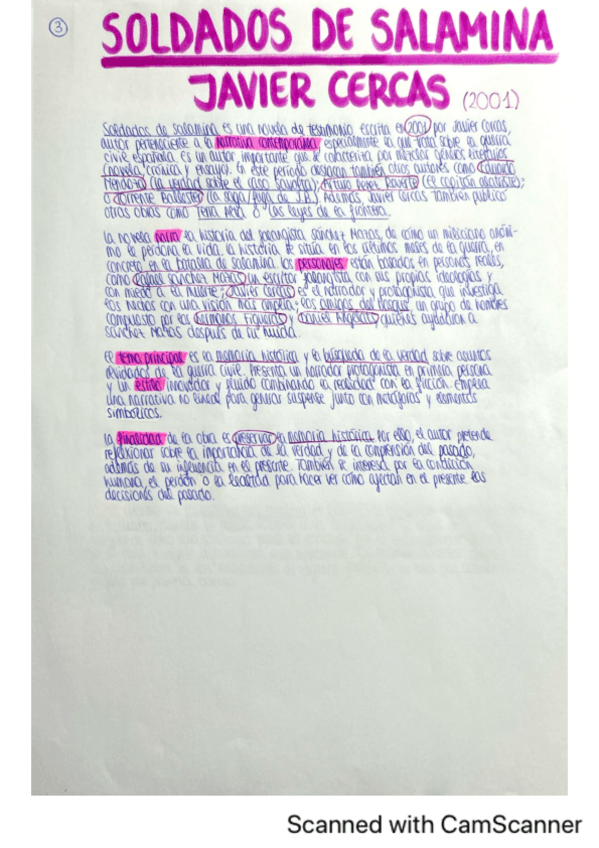 3
SOLDADOS DE SALAMINA
JAVIER CERCAS (2001)
Soldados de Salamina es una novela de testimonio escrita en 2001 por Javier Cercas,
autor perteneciente a la narrativa contemporánea, especialmente la que trata sobre la guerra
civil española. Es un autor importante que se caracteriza por mezclar géneros literarios
(novela, crónica y ensayo). En este periodo destacan también otros autores como Eduardo
Mendoza (la verdad sobre el caso Savolta); Arturo Pérez Reverte (El capitán alatriste);
o Torrente Ballester (la saga/fuga de J.B). Además, Javier Cercas también publicó
otras obras como Terra Alta o las leyes de la frontera.
La novela narra la historia del falangista Sánchez Mazas, de cómo un miliciano anóni-
mo le perdona la vida. La historia se sitúa en los últimos meses de la guerra, en
concreto, en la batalla de salamina. Los personajes están basados en personas reales,
como Rafael Sánchez Mazas, un escritor falangista con sus propias ideologías y
con miedo a la muerte; Javier Cercas es el narrador y protagonista que investiga
los hechos con una visión más amplia; los amigos del bosque, un grupo de hombres
compuesto por los hermanos Figueras y Daniel Angelats, quienes ayudaron a
Sánchez Mazas después de su huida.
El tema principal es la memoria histórica y la búsqueda de la verdad sobre asuntos
olvidados de la guerra civil. Presenta un narrador protagonista en primera persona
y un estilo innovador y fluido combinando la realidad con la ficción. Emplea
una narrativa no lineal para generar suspense junto con metáforas y elementos
simbólicos.
La finalidad de la obra es preservar la memoria histórica. Por ello, el autor pretende
reflexionar sobre la importancia de la verdad y de la comprensión del pasado,
además de su influencia en el presente. También se interesa por la condición
humana, el perdón o la lealtad para hacer ver cómo afectan en el presente las
decisiones del pasado.
Scanned with CamScanner